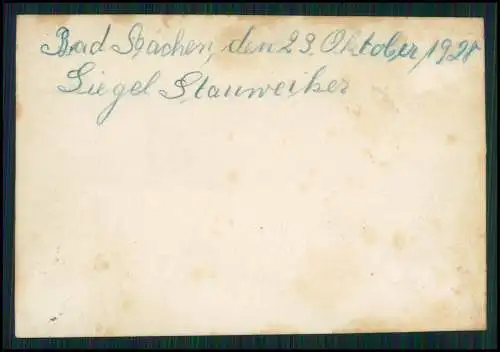 Bad Aachen, den 23. Oktober 1928
Siegel Stauweiher